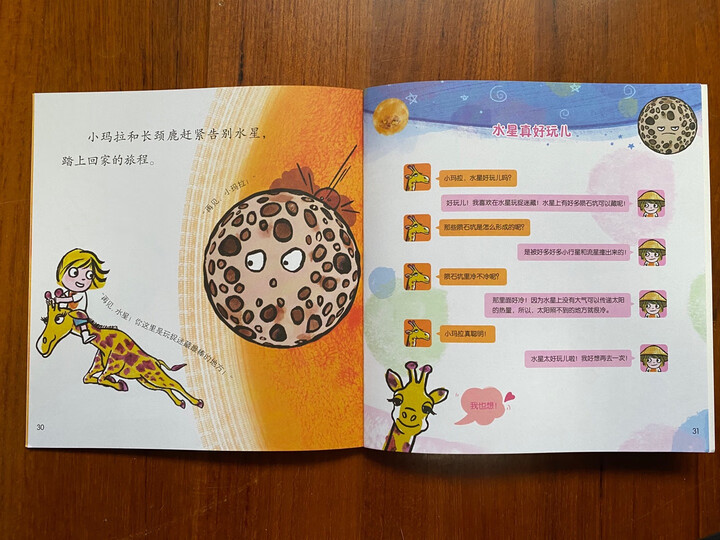 小玛拉和长颈鹿赶紧告别水星，
踏上回家的旅程。
“再见，小玛拉！”
“再见，水星！你这里是玩捉迷藏最棒的地方！”
30
水星真好玩儿
小玛拉，水星好玩儿吗？
好玩儿！我喜欢在水星玩捉迷藏！水星上有好多陨石坑可以藏呢！
那些陨石坑是怎么形成的呢？
是被好多好多小行星和流星撞出来的！
陨石坑里冷不冷呢？
那里面好冷！因为水星上没有大气可以传递太阳
的热量，所以，太阳照不到的地方就很冷。
小玛拉真聪明！
水星太好玩儿啦！我好想再去一次！
我也想！
31